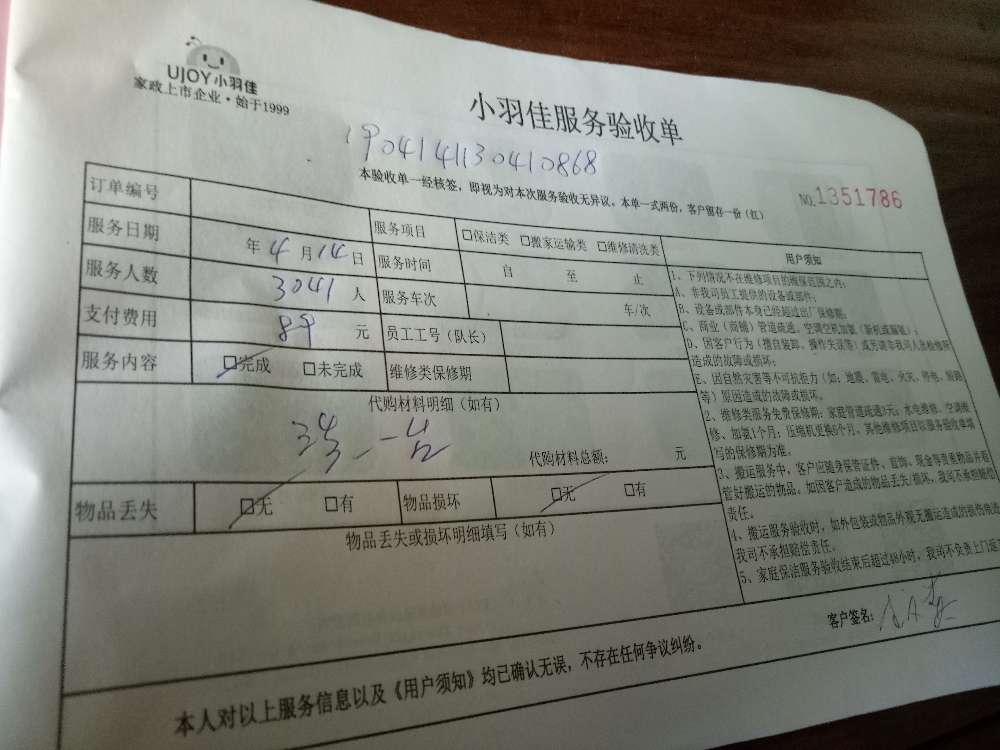 UJOY小羽佳
家政上市企业·始于1999
小羽佳服务验收单
1904141130410868
本验收单一经核签，即视为对本次服务验收无异议。本单一式两份，客户留存一份（红）
NO.1351786
订单编号
服务项目 □保洁类 □搬家运输类 □维修清洗类
服务日期 年4月14日
服务时间 自 至 止
服务人数 3041人
服务车次 车/次
支付费用 89元
员工工号（队长）
服务内容 □完成 □未完成
维修类保修期
代购材料明细（如有）
代购材料总额： 元
物品丢失 □无 □有
物品损坏 □无 □有
物品丢失或损坏明细填写（如有）
用户须知
1、下列情况不在维修项目的维保范围之内：
A、非我司员工提供的设备或部件；
B、设备或部件本身已经超过出厂保修期；
C、商业（商铺）管道疏通，空调空机加氨（新机或漏氨）；
D、因客户行为（擅自装卸、操作失误等）或另请非我司人员检修所
造成的故障或损坏；
E、因自然灾害等不可抗拒力（如：地震、雷电、火灾、停电、短路
等）原因造成的故障或损坏。
2、维修类服务免费保修期：家庭管道疏通3天；水电维修、空调维
修、加氨1个月；压缩机更换6个月，其他维修项目以服务验收单填
写的保修期为准。
3、搬运服务中，客户应随身保管证件、首饰、现金等贵重物品并看
管好搬运的物品。如因客户造成的物品丢失/损坏，我司不承担赔偿
责任。
4、搬运服务验收时，如外包装或物品外观无搬运造成的损伤痕迹
我司不承担赔偿责任。
5、家庭保洁服务验收结束后超过48小时，我司不负责上门返工
客户签名：
本人对以上服务信息以及《用户须知》均已确认无误，不存在任何争议纠纷。